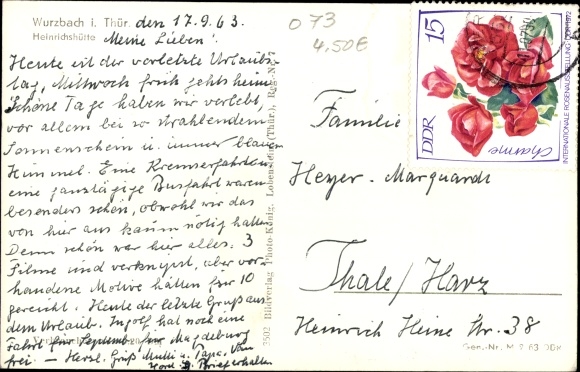 Wurzbach i. Thür. den 17.9.63.
Heinrichshütte Meine Lieben!
Heute ist der vorletzte Urlaubs-
tag, Mittwoch früh gehts heim
Schöne Tage haben wir verlebt,
vor allem bei so strahlendem
Sonnenschein u. immer blauem
Himmel. Eine Kremserfahrt u.
eine ganztägige Busfahrt waren
besonders schön, obwohl wir das
von hier aus kaum nötig hatten
Denn schön war hier alles. 3
Filme sind verknipst, aber vor-
handene Motive hätten für 10
gereicht. Heute der letzte Gruß aus
dem Urlaub. Ingolf hat noch eine
Fahrt für Septemb. für Magdeburg
frei. – Herzl. Grüß Mutti u. Papa.
Brief erhalten
073
4,50E
15
DDR
Charme
INTERNATIONALE ROSENAUSSTELLUNG DDR 1972
Familie
Heyer - Marquardt
Thale/Harz
Heinrich Heine Str. 38
3502 Bildverlag Photo-König, Lobenstein (Thür.), Reg.-Nr.
Gen.-Nr. M 2 63 DDR